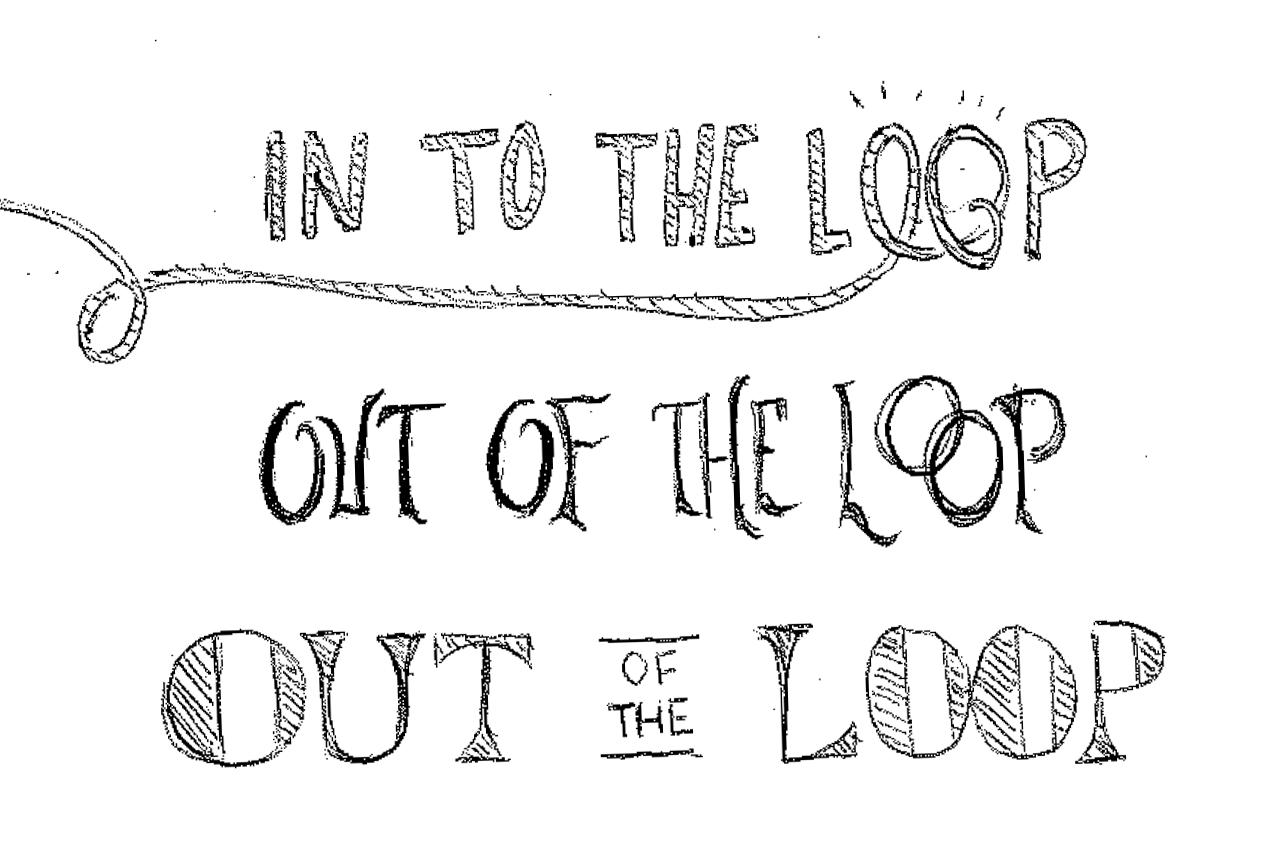 IN TO THE LOOP
OUT OF THE LOOP
OUT OF THE LOOP